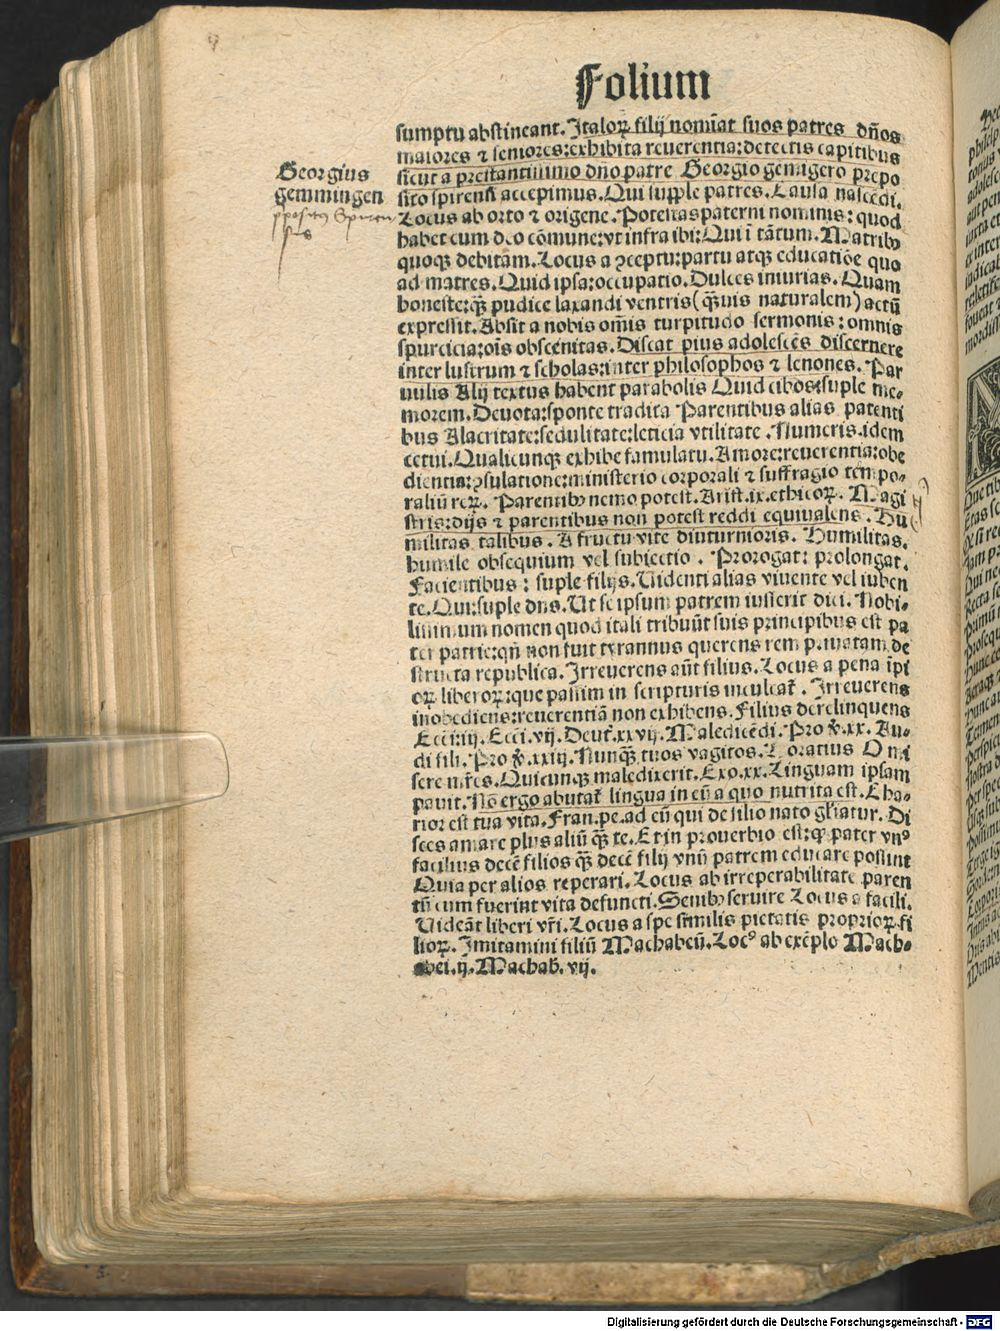 Folium
sumptu abstineant. Italoꝝ filij nomīat suos patres dños
maiores ⁊ seniores: exhibita reuerentia: detectis capitibus
sicut a prestantissimo dño patre Georgio gemigero prepo
sito spirensi accepimus. Qui supple patres. Causa nascēdi.
Locus ab orto ⁊ origene. Potestas paterni nominis: quod
habet cum deo cōmune: vt infra ibi: Qui ī tātum. Matribꝰ
quoqꝫ debitam. Locus a ꝯceptu: partu atqꝫ educatiōe quo
ad matres. Quid ipsa: occupatio. Dulces iniurias. Quam
honeste: qꝫ̄ pudice laxandi ventris (qꝫ̄uis naturalem) actū
expressit. Absit a nobis om̄is turpitudo sermonis: omnis
spurcicia: oīs obscenitas. Discat pius adolescēs discernere
inter lustrum ⁊ scholas: inter philosophos ⁊ lenones. Par
uulis Alij textus habent parabolis Quid cibos: suple me-
morem. Deuota: sponte tradita Parentibus alias patenti
bus Alacritate: sedulitate: leticia vtilitate. Numeris. idem
cetui. Qualicunqꝫ exhibe famulatu. Amore: reuerentia: obe
dientia: ꝯsulatione: ministerio corporali ⁊ suffragio tempo-
raliū reꝝ. Parentibꝰ nemo potest. Arist. ix. ethicoꝝ. Magi
stris: dijs ⁊ parentibus non potest reddi equiualens. Hu
militas talibus. A fructu vite diuturnioris. Humilitas.
humile obsequium vel subiectio. Prorogat: prolongat.
Facientibus: suple filijs. Uidenti alias viuente vel iuben
te. Qui: suple dns. Ut se ipsum patrem iusserit dici. Nobi-
lissimum nomen quod itali tribuūt suis principibus est pa
ter patrie: qñ non fuit tyrannus querens rem priuatam de
structa republica. Irreuerens aūt filius. Locus a pena īpi
oꝝ liberoꝝ: que passim in scripturis inculcat᷑. Irreuerens
inobediens: reuerentiā non exhibens. Filius derelinquens
Ecci: iij. Ecci. vij. Deut᷑. xxvij. Maledicēdi. Prouer. xx. Au-
di fili. Prouer. xxiij. Nunqꝫ̄ tuos vagitos. Horatius O mi
sere mr̄es. Quicunqꝫ maledixerit. Exo. xx. Linguam ipsam
pauit. Nō ergo abutat᷑ lingua in eū a quo nutrita est. Cha-
rior est tua vita. Fran. pe. ad eū qui de filio nato gl̄iatur. Di
sces amare plus aliū qꝫ̄ te. Et in prouerbio est: ꝙ pater vnꝰ
facilius decē filios qꝫ̄ decē filij vnū patrem educare possint
Quia per alios reperari. Locus ab irreperabilitate paren
tū cum fuerint vita defuncti. Senibꝰ seruire Locus a facili.
Uideāt liberi vr̄i. Locus a spe similis pietatis proprioꝝ fi
lioꝝ. Imitamini filiū Machabeū. Locꝰ ab exēplo Mach-
abei. ij. Machab. vij.
Georgius
gemmingen
ppositus Spiren
sis
Digitalisierung gefördert durch die Deutsche Forschungsgemeinschaft - DFG